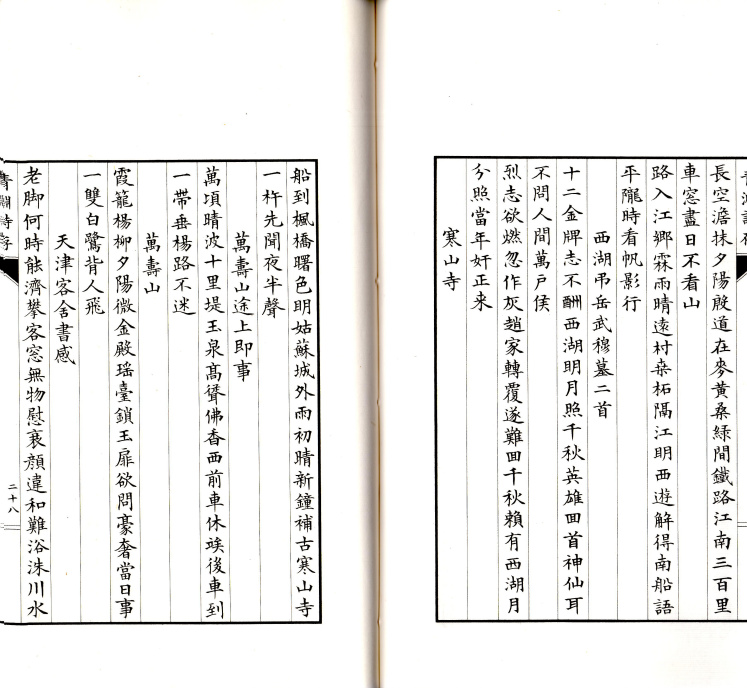 長空澹抹夕陽殷道在麥黃桑綠間鐵路江南三百里
車窓盡日不看山
路入江鄉霖雨晴遠村桑柘隔江明西遊解得南船語
平隴時看帆影行
西湖弔岳武穆墓二首
十二金牌志不酬西湖明月照千秋英雄回首神仙耳
不問人間萬戶侯
烈志欲燃忽作灰趙家轉覆遂難回千秋賴有西湖月
分照當年奸正來
寒山寺
船到楓橋曙色明姑蘇城外雨初晴新鐘補古寒山寺
一杵先聞夜半聲
萬壽山途上即事
萬頃晴波十里堤玉泉高聳佛香西前車休竢後車到
一帶垂楊路不迷
萬壽山
霞籠楊柳夕陽微金殿瑤臺鎖玉扉欲問豪奢當日事
一雙白鷺背人飛
天津客舍書感
老脚何時能濟攀客窓無物慰衰顏違和難浴洙川水
二十八